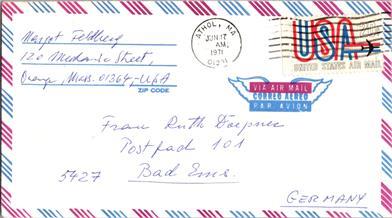 Margot Feldberg
120 Mechanic Street,
Orange, Mass. 01364, USA
ZIP CODE
ATHOL, MA
JUN 17
AM
1971
USA
UNITED STATES AIR MAIL
VIA AIR MAIL
CORREO AEREO
PAR AVION
Frau Ruth
Postfach 101
5427 Bad Ems.
GERMANY